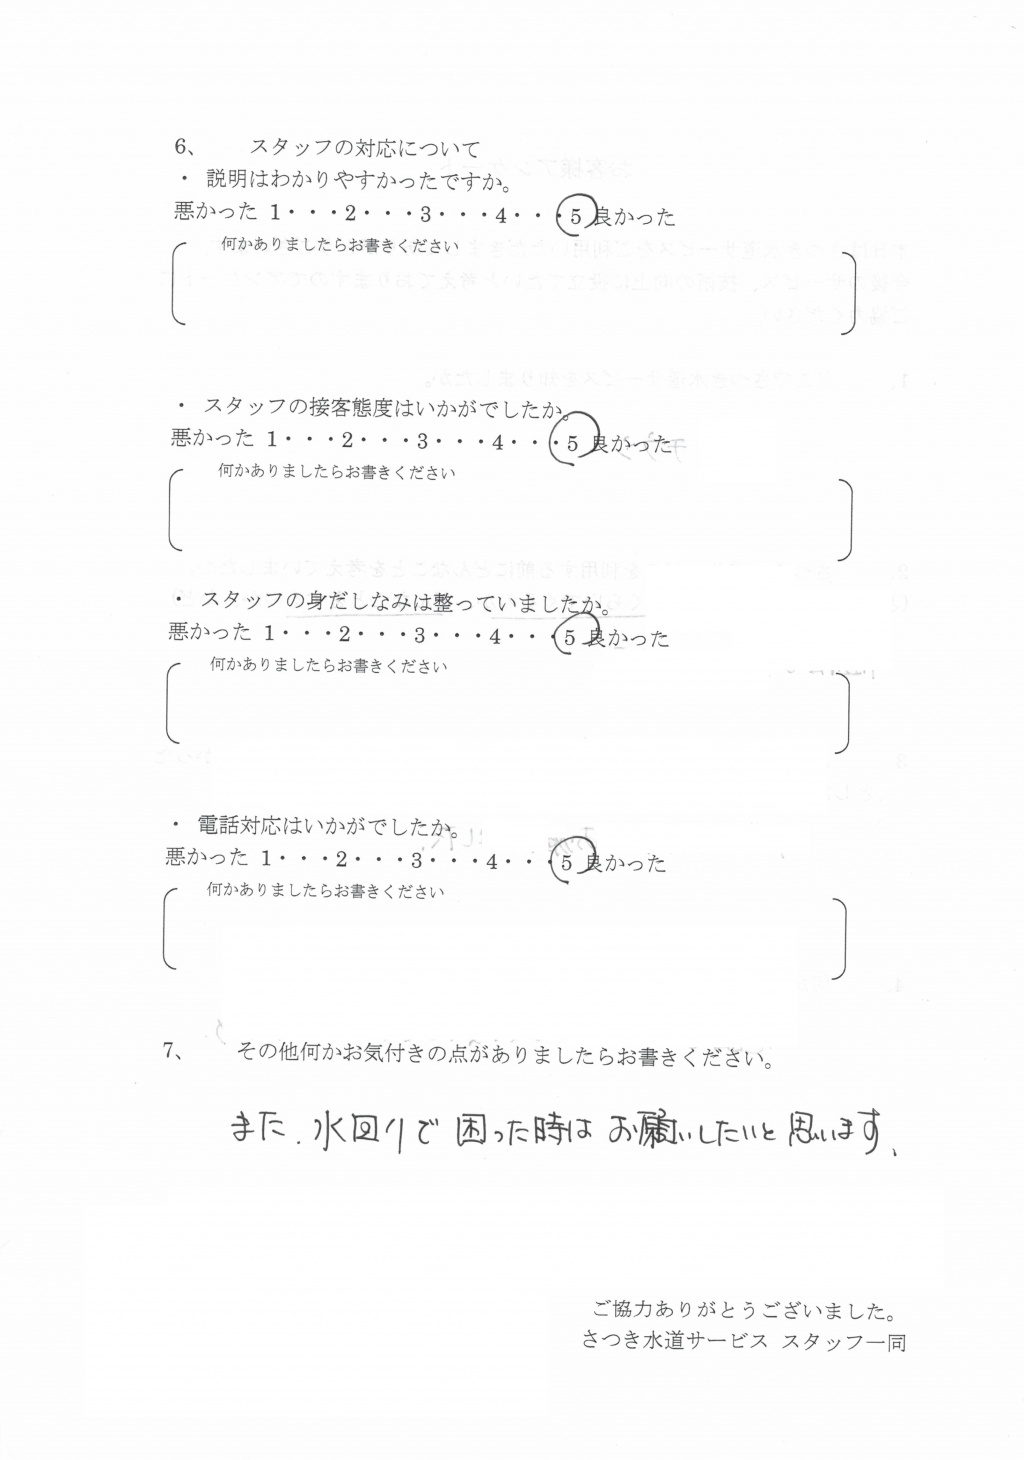 6、　スタッフの対応について
・ 説明はわかりやすかったですか。
悪かった 1・・・2・・・3・・・4・・・5 良かった
何かありましたらお書きください
・ スタッフの接客態度はいかがでしたか。
悪かった 1・・・2・・・3・・・4・・・5 良かった
何かありましたらお書きください
・ スタッフの身だしなみは整っていましたか。
悪かった 1・・・2・・・3・・・4・・・5 良かった
何かありましたらお書きください
・ 電話対応はいかがでしたか。
悪かった 1・・・2・・・3・・・4・・・5 良かった
何かありましたらお書きください
7、　その他何かお気付きの点がありましたらお書きください。
また、水回りで困った時はお願いしたいと思います、
ご協力ありがとうございました。
さつき水道サービス スタッフ一同